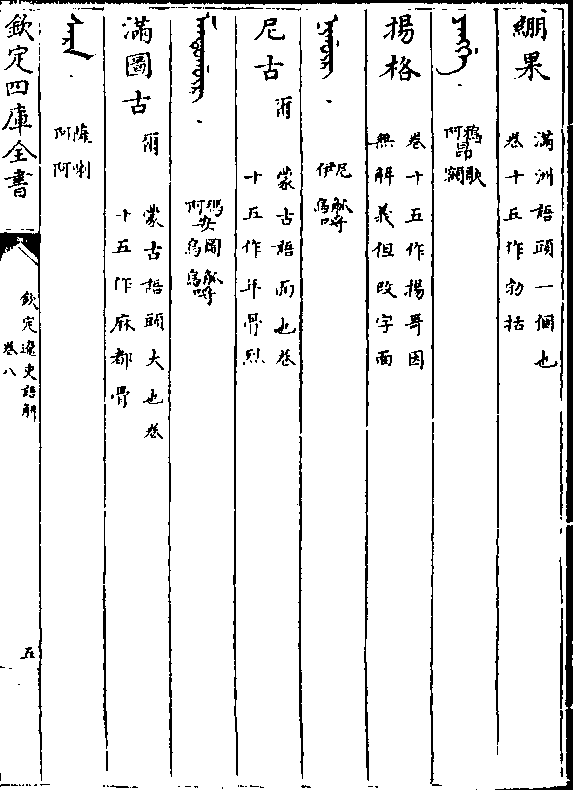 繃果
滿洲語頭一個也
卷十五作勃括
鴉昂歌
阿 額
揚格
卷十五作揚哥因
無解義但改字面
尼觚哷
伊烏
尼古爾
蒙古語面也卷
十五作年骨烈
瑪安圖觚哷
阿 烏烏
滿圖古爾
蒙古語頭大也卷
十五作麻都骨
薩喇
阿阿
欽定四庫全書
欽定遼史語解
卷八
五